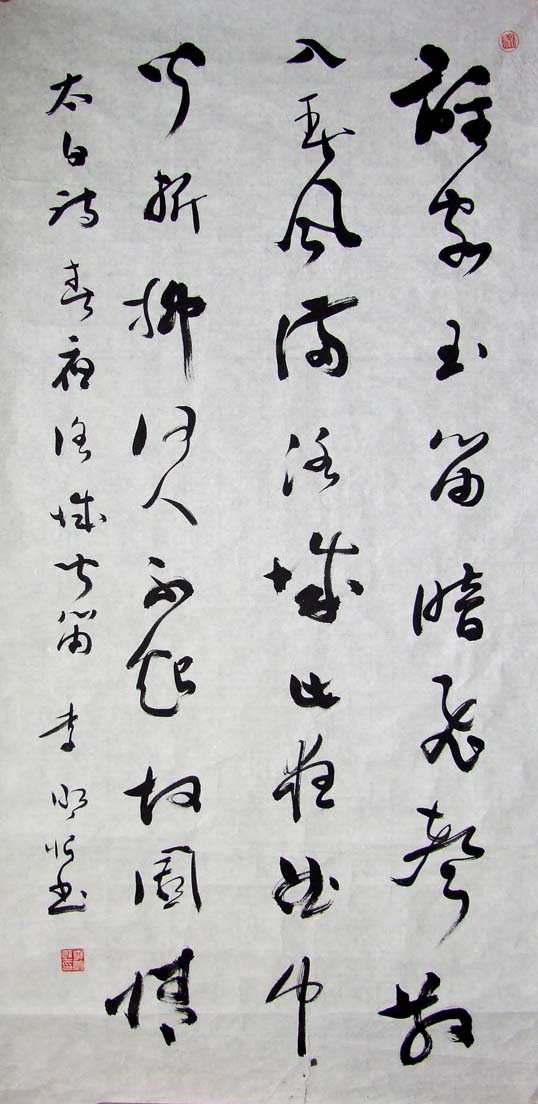 誰家玉笛暗飛聲散
入春風滿洛城此夜曲中
聞折柳何人不起故園情
太白詩春夜洛城聞笛 李明书